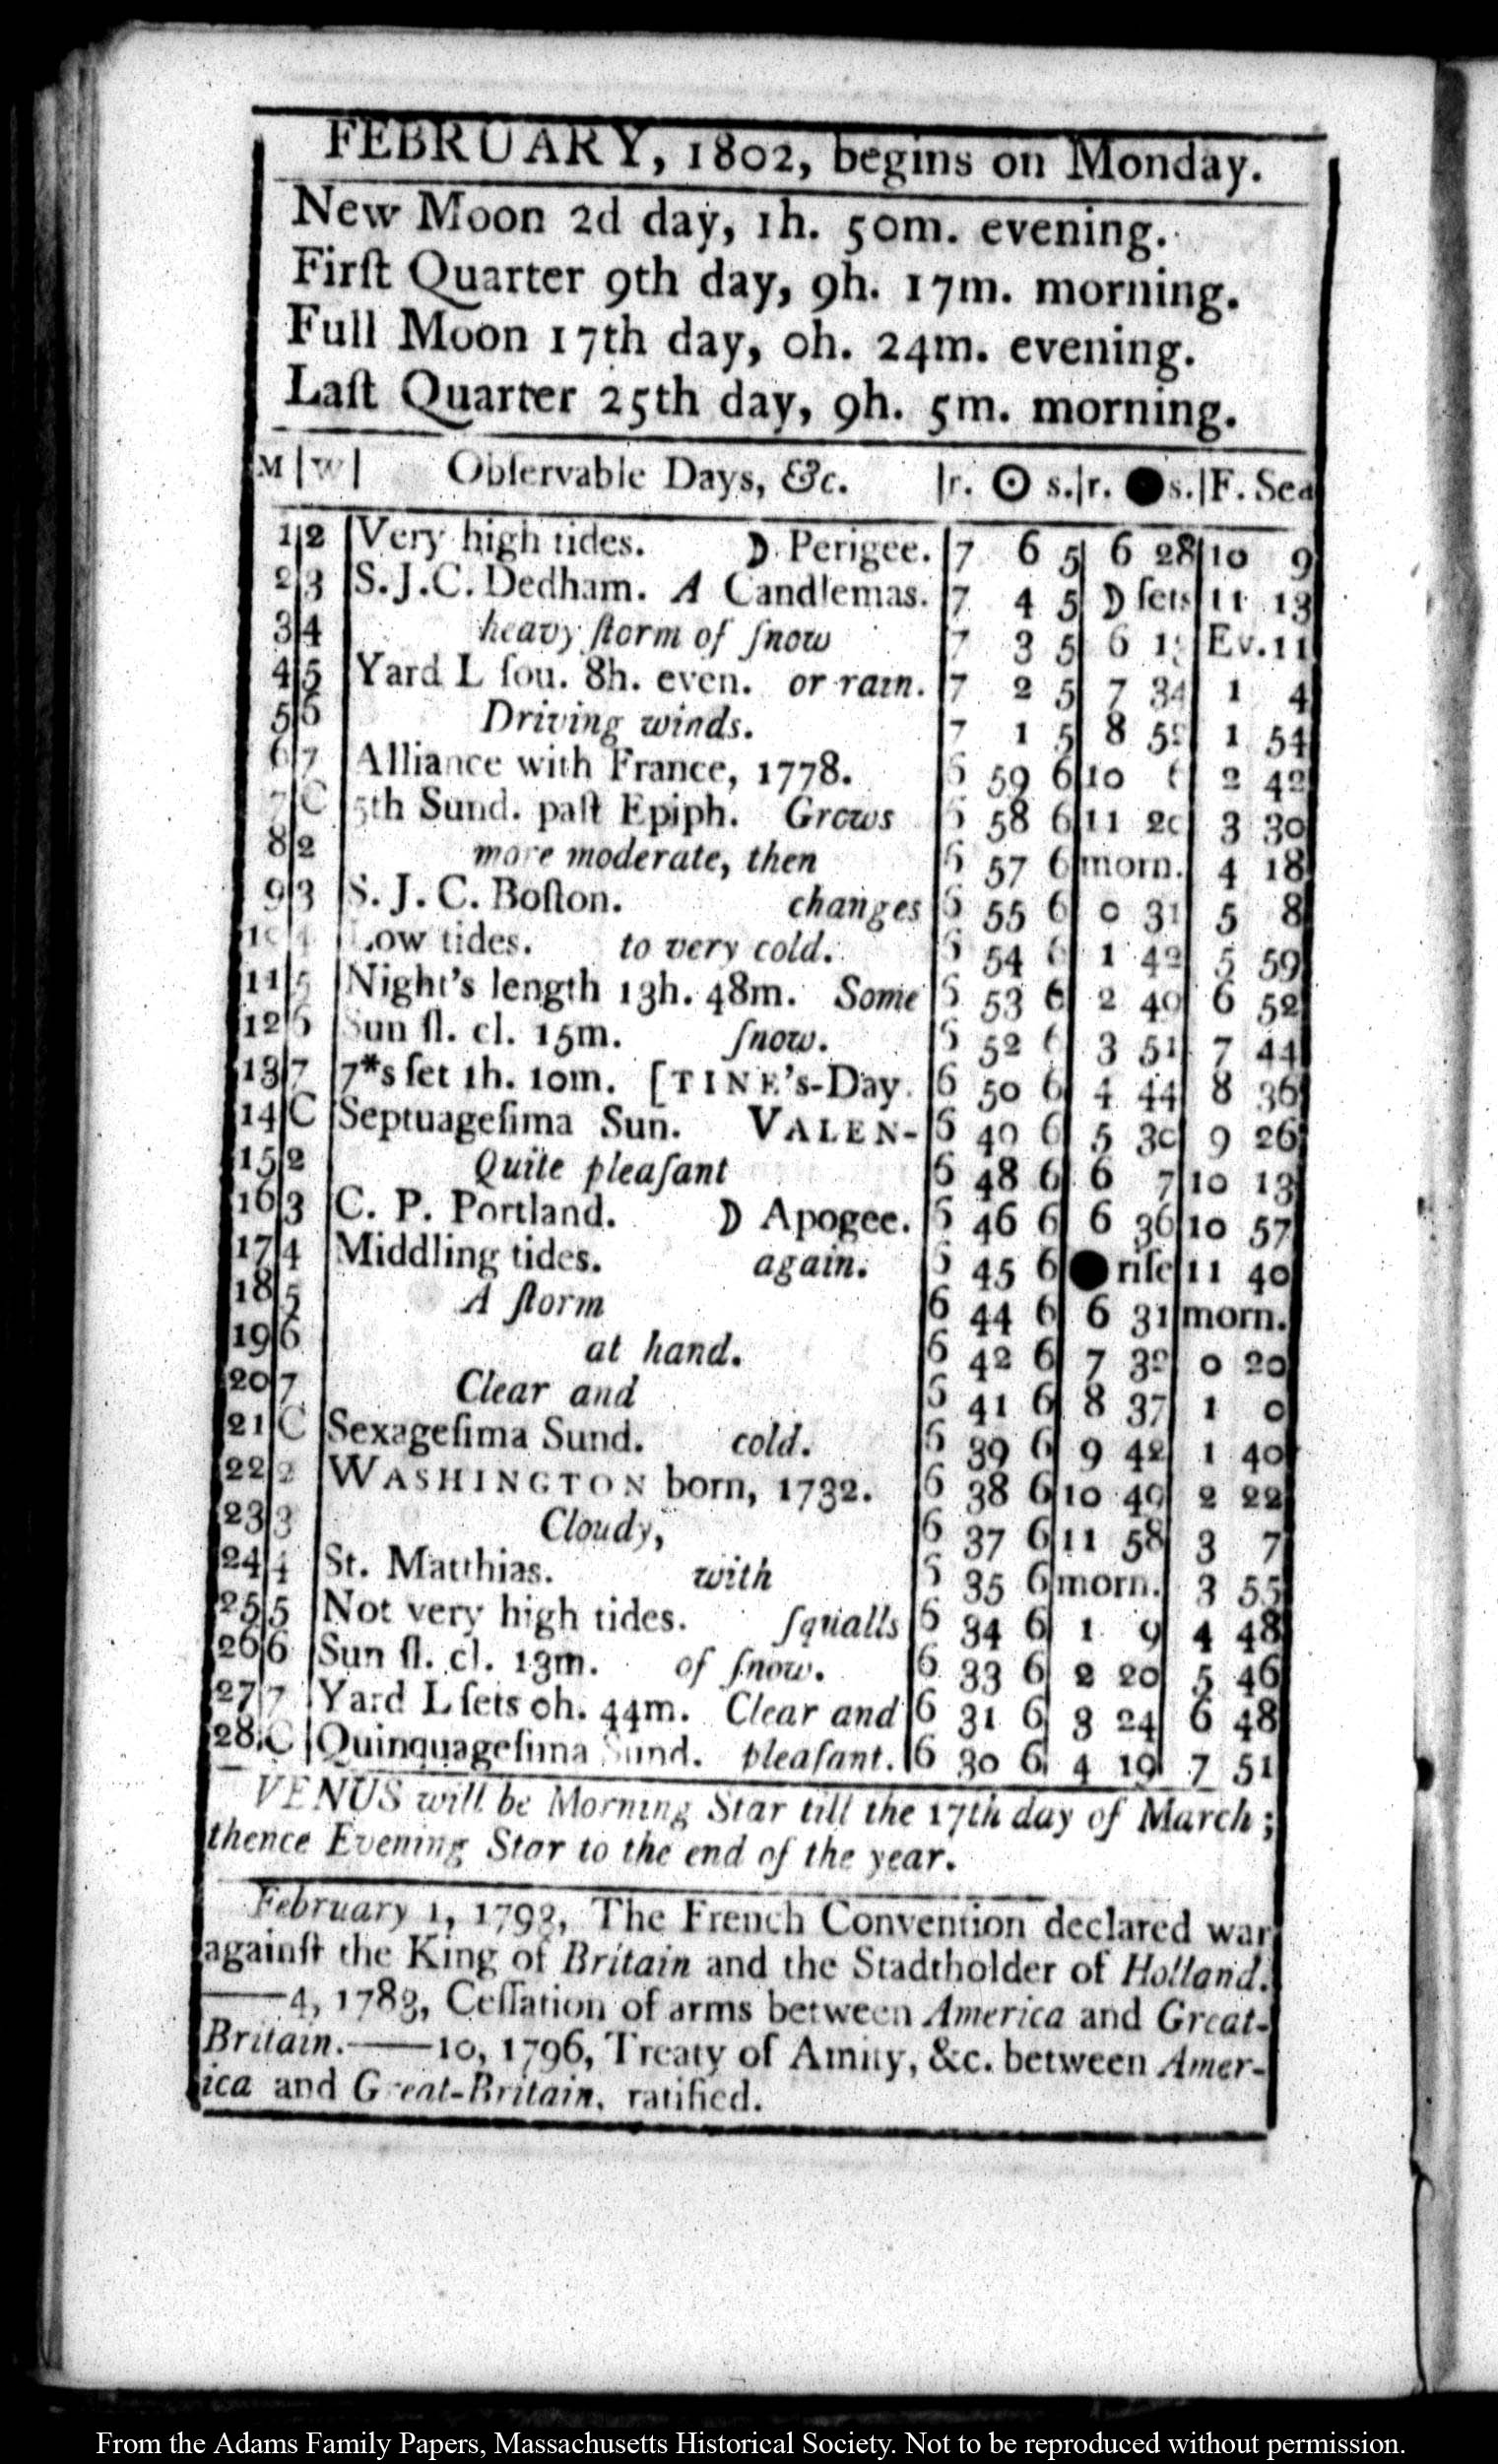 FEBRUARY, 1802, begins on Monday.
New Moon 2d day, 1h. 50m. evening.
Firſt Quarter 9th day, 9h. 17m. morning.
Full Moon 17th day, 0h. 24m. evening.
Laſt Quarter 25th day, 9h. 5m. morning.
M|W| Obſervable Days, &c. |r. ☉ s.|r. ● s.|F. Sea
1|2 |Very high tides. ☽ Perigee. |7 6 5| 6 28|10 9
2|3 |S.J.C. Dedham. A Candlemas. |7 4 5| ☽ ſets|11 13
3|4 heavy ſtorm of ſnow |7 3 5| 6 |Ev. 11
4|5 |Yard L ſou. 8h. even. or rain. |7 2 5| 7 34| 1 4
5|6 Driving winds. |7 1 5| 8 | 1 54
6|7 |Alliance with France, 1778. |6 59 6|10 | 2 42
7|C |5th Sund. paſt Epiph. Grows |6 58 6|11 20| 3 30
8|2 more moderate, then |6 57 6|morn.| 4 18
9|3 |S. J. C. Boſton. changes |6 55 6| 0 31| 5 8
10|4 |Low tides. to very cold. |6 54 6| 1 42| 5 59
11|5 |Night's length 13h. 48m. Some |6 53 6| 2 49| 6 52
12|6 |Sun ſl. cl. 15m. ſnow. |6 52 6| 3 51| 7 44
13|7 |7*s ſet 1h. 10m. [TINE's-Day. |6 50 6| 4 44| 8 36
14|C |Septuageſima Sun. VALEN- |6 49 6| 5 30| 9 26
15|2 Quite pleaſant |6 48 6| 6 7|10 13
16|3 |C. P. Portland. ☽ Apogee. |6 46 6| 6 36|10 57
17|4 |Middling tides. again. |6 45 6|● riſe|11 40
18|5 A ſtorm |6 44 6| 6 31|morn.
19|6 at hand. |6 42 6| 7 32| 0 20
20|7 Clear and |6 41 6| 8 37| 1 0
21|C |Sexageſima Sund. cold. |6 39 6| 9 42| 1 40
22|2 |WASHINGTON born, 1732. |6 38 6|10 49| 2 22
23|3 Cloudy, |6 37 6|11 58| 3 7
24|4 |St. Matthias. with |6 35 6|morn.| 3 55
25|5 |Not very high tides. ſqualls |6 34 6| 1 9| 4 48
26|6 |Sun ſl. cl. 13m. of ſnow. |6 33 6| 2 20| 5 46
27|7 |Yard L ſets 0h. 44m. Clear and |6 31 6| 3 24| 6 48
28|C |Quinquageſima Sund. pleaſant. |6 30 6| 4 19| 7 51
VENUS will be Morning Star till the 17th day of March;
thence Evening Star to the end of the year.
February 1, 1793, The French Convention declared war
againſt the King of Britain and the Stadtholder of Holland.
——4, 1783, Ceſſation of arms between America and Great-
Britain.——10, 1796, Treaty of Amity, &c. between Amer-
ica and Great-Britain, ratified.
From the Adams Family Papers, Massachusetts Historical Society. Not to be reproduced without permission.